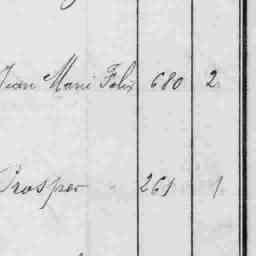 Jean Marie Felix 680 2
Prosper 261 1